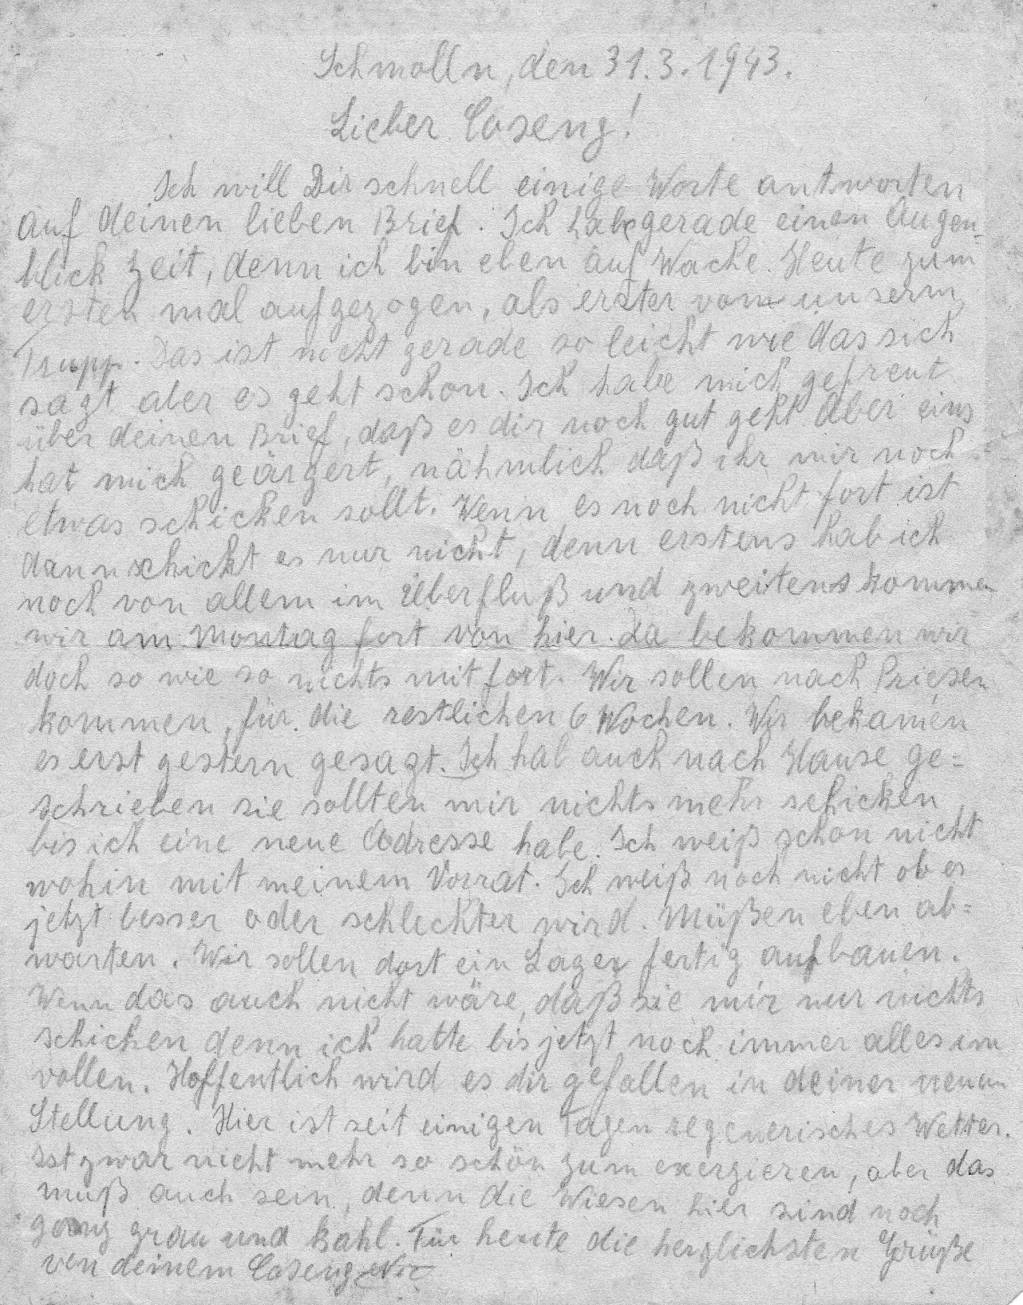 Schmolln, den 31.3.1943.
Lieber Coseng!
Ich will Dir schnell einige Worte antworten
auf deinen lieben Brief. Ich habe gerade einen Augen=
blick Zeit, denn ich bin eben auf Wache. Heute zum
ersten mal aufgezogen, als erster vom unserm
Trupp. Das ist nicht gerade so leicht wie das sich
sagt aber es geht schon. Ich habe mich gefreut
über deinen Brief, daß es dir noch gut geht. Aber eins
hat mich geärgert, nähmlich daß ihr mir noch
etwas schicken sollt. Wenn es noch nicht fort ist
dann schickt es nur nicht, denn erstens hab ich
noch von allem im Überfluß und zweitens kommen
wir am Montag fort von hier. Da bekommen wir
doch so wie so nichts mit fort. Wir sollen nach Priesen
kommen, für die restlichen 6 Wochen. Wir bekamen
es erst gestern gesagt. Ich hab auch nach Hause ge=
schrieben sie sollten mir nichts mehr schicken
bis ich eine neue Adresse habe. Ich weiß schon nicht
wohin mit meinem Vorrat. Ich weiß noch nicht ob es
jetzt besser oder schleckter wird. Müßen eben ab=
warten. Wir sollen dort ein Lager fertig aufbauen.
Wenn das auch nicht wäre, daß sie mir nur nichts
schicken denn ich hatte bis jetzt noch immer alles im
vollen. Hoffentlich wird es dir gefallen in deiner neuen
Stellung. Hier ist seit einigen Tagen regenerisches Wetter.
Ist zwar nicht mehr so schön zum exerzieren, aber das
muß auch sein, denn die Wiesen hier sind noch
ganz grau und Kahl. Für heute die herzlichsten Grüße
von deinem Coseng